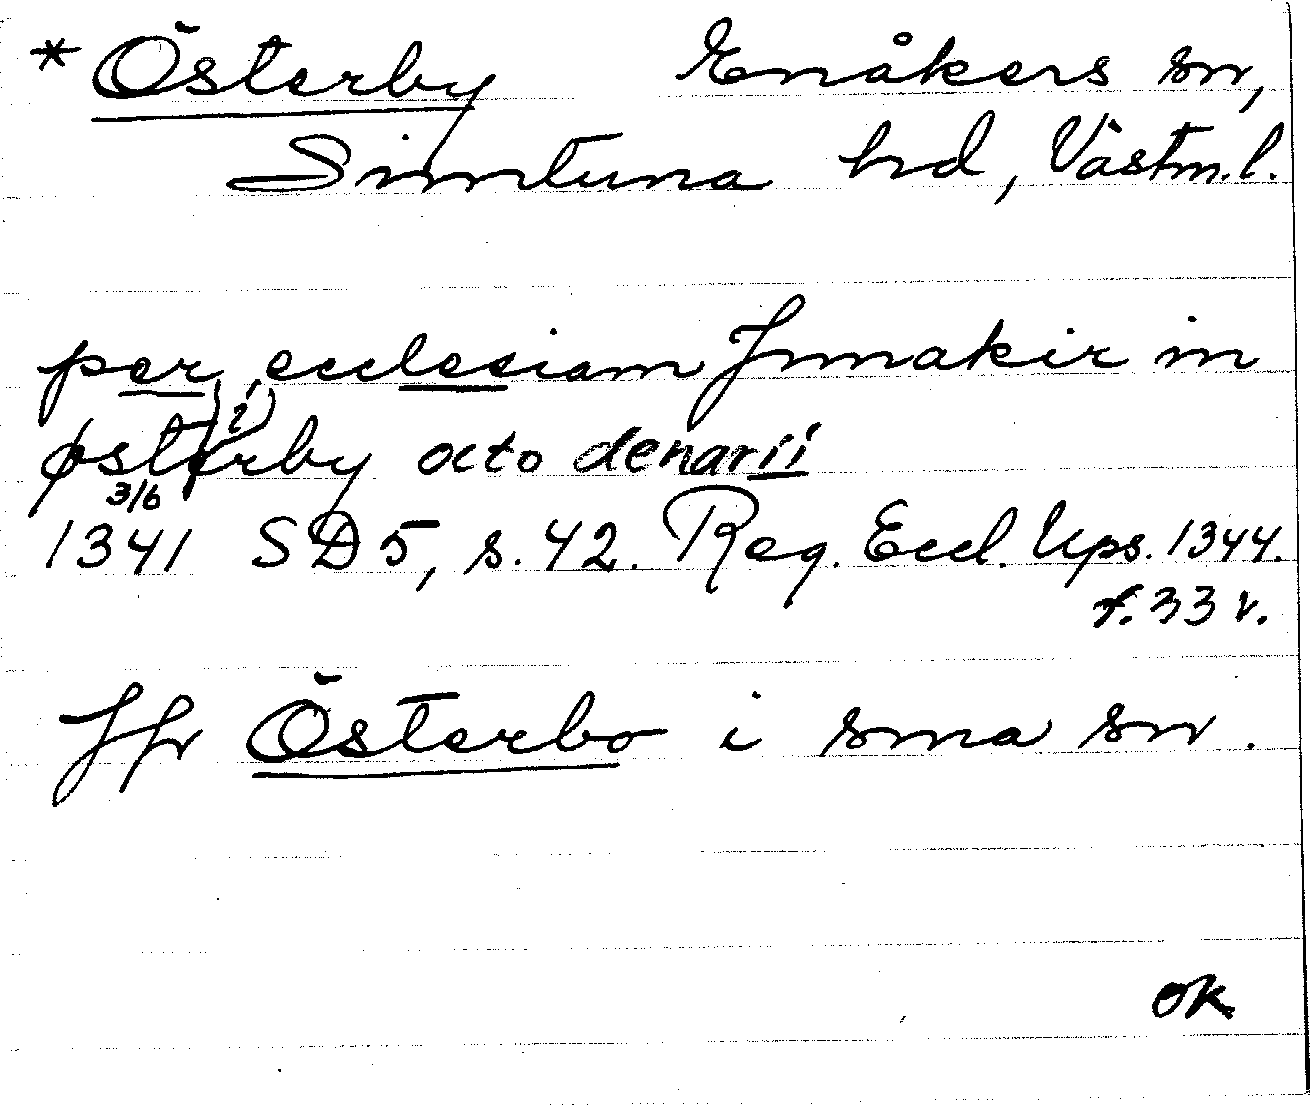 * Österby Enåkers sn,
Simtuna hd, Västm.l.
per ecclesiam Jnnakir in
(i)
østerby octo denarii
3/6
1341 SD5, s.42. Reg. Eccl. Ups. 1344.
f. 33 v.
Jfr Österbo i sma sn.
ok